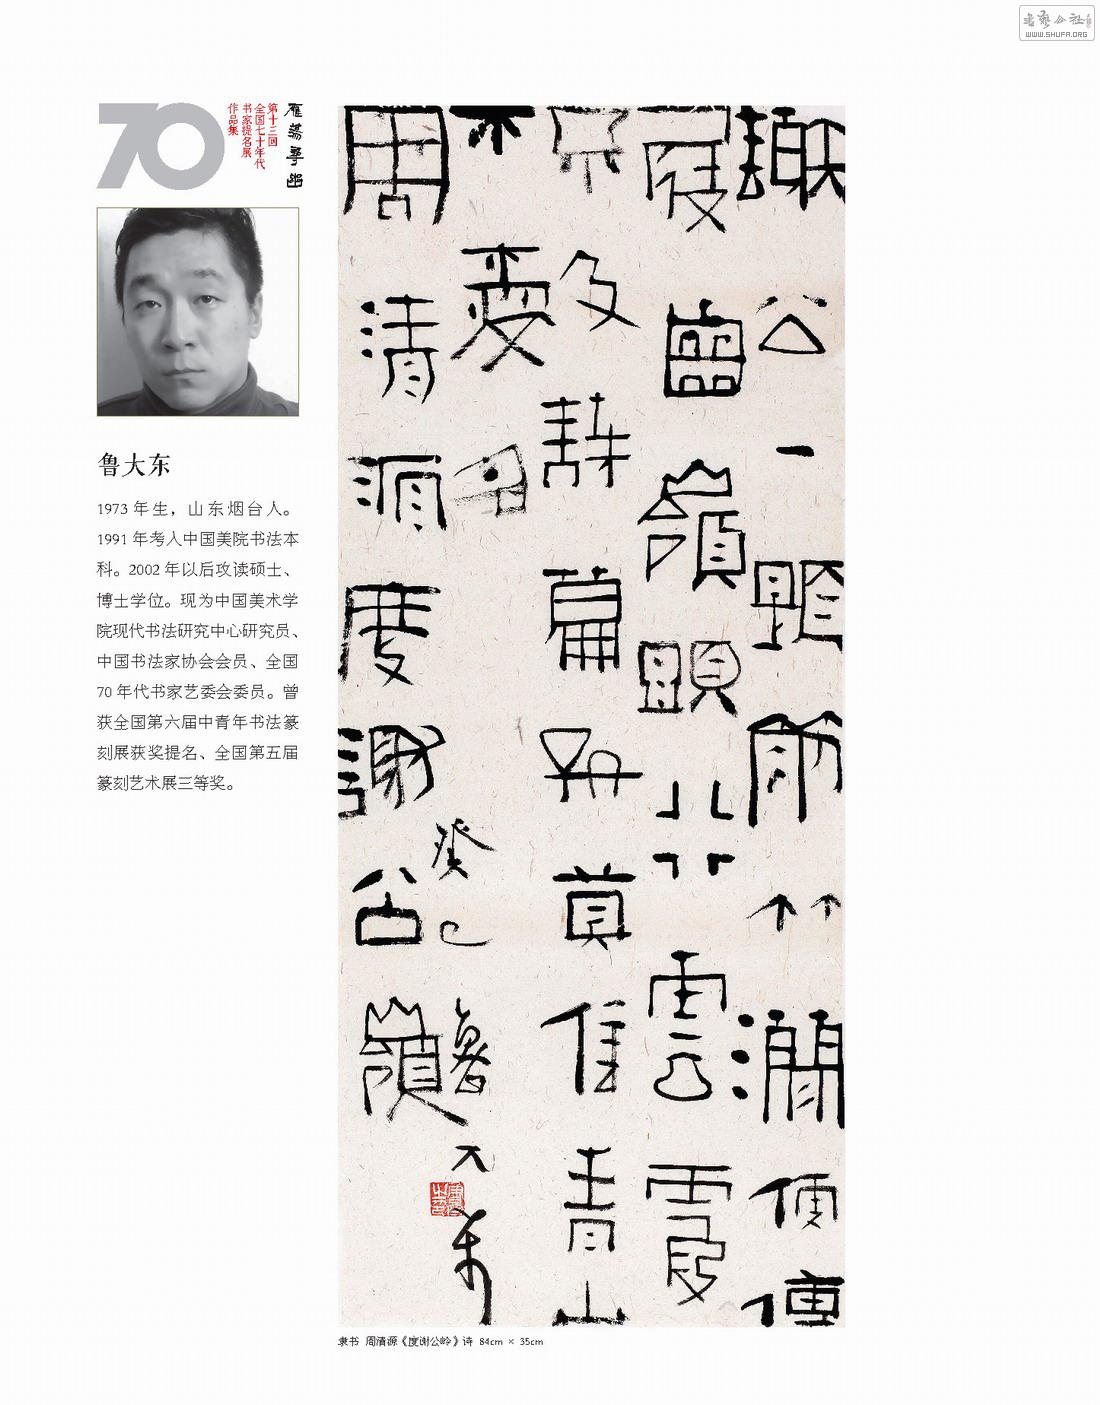 書藝公社
WWW.SHUFA.ORG
70
雁荡寻幽
第十三回
全国七十年代
书家提名展
作品集
鲁大东
1973 年生，山东烟台人。
1991 年考入中国美院书法本
科。2002 年以后攻读硕士、
博士学位。现为中国美术学
院现代书法研究中心研究员、
中国书法家协会会员、全国
70 年代书家艺委会委员。曾
获全国第六届中青年书法篆
刻展获奖提名、全国第五届
篆刻艺术展三等奖。
公一題竹便傳
屐齒嶺雲霞
不及篇惟青山
不愛名
周清源度謝公嶺
癸巳魯大東
隶书 周清源《度谢公岭》诗 84cm × 35cm